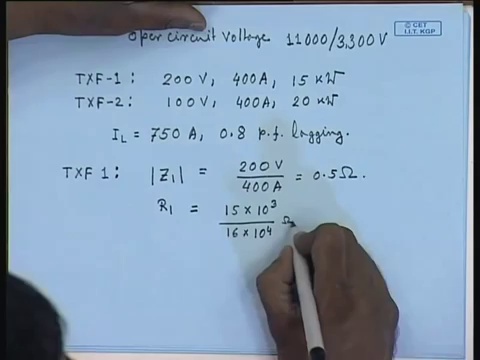 Open circuit Voltage 11000/3,300V
© CET
I.I.T. KGP
TXF-1: 200 V, 400A, 15 kW
TXF-2: 100 V, 400A, 20 kW
I_L = 750 A, 0.8 p.f. lagging.
TXF 1: |Z₁| = 200 V / 400 A = 0.5 Ω.
R₁ = 15 × 10³ / 16 × 10⁴ Ω